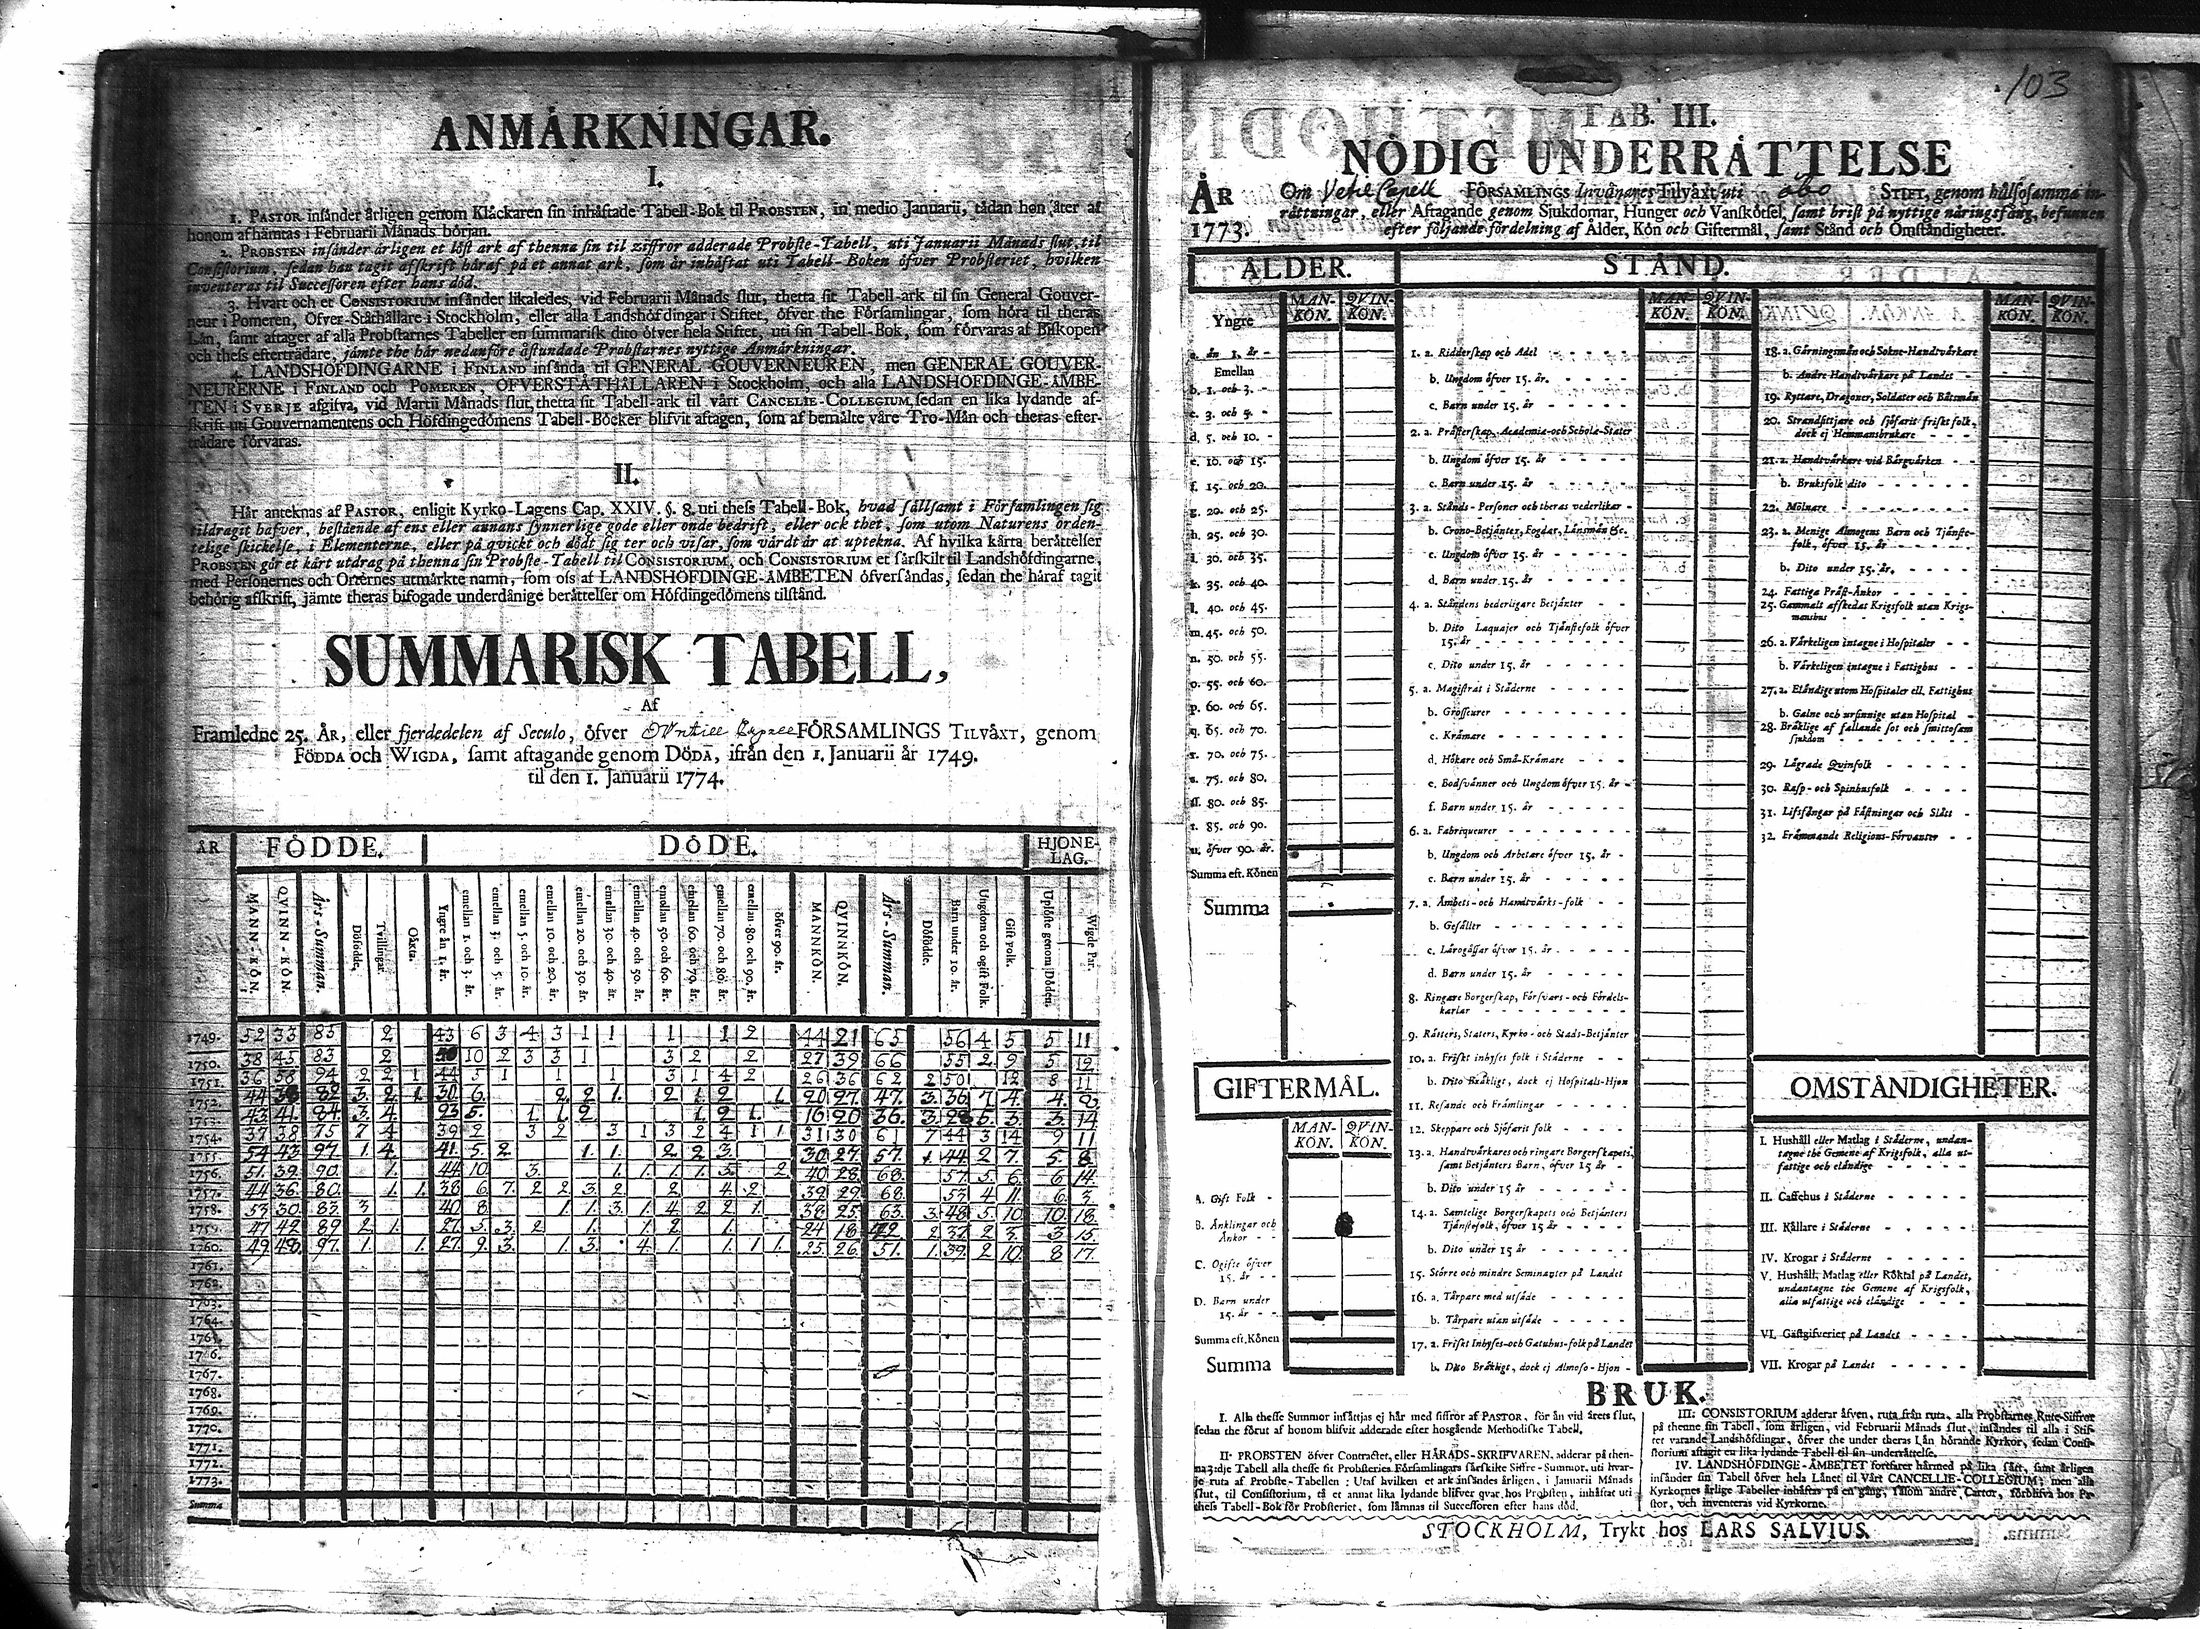 ANMÄRKNINGAR.
I.
1. PASTOR insänder årligen genom Klåckaren sin inhäftade Tabell-Bok til PROBSTEN, in medio Januarii, tådan hon åter af
honom afhämtas i Februarii Månads början.
2. PROBSTEN insänder årligen et löst ark af thenna sin til ziffror adderade Probste-Tabell, uti Januarii Månads slut, til
Consistorium, sedan han tagit afskrift häraf på et annat ark, som är inhäftat uti Tabell-Boken öfver Probsteriet, hvilken
inventeras til Successoren efter hans död.
3. Hvart och et CONSISTORIUM insänder likaledes, vid Februarii Månads slut, thetta sit Tabell-ark til sin General Gouver-
neur i Pomeren, Öfver-Ståthållare i Stockholm, eller alla Landshöfdingar i Stiftet, öfver the Församlingar, som höra til theras
Län, samt aftager af alla Probstarnes Tabeller en summarisk dito öfver hela Stiftet, uti sin Tabell-Bok, som förvaras af Biskopen
och thess efterträdare, jämte the här nedanföre åstundade Probstarnes nyttige Anmärkningar.
4. LANDSHÖFDINGARNE i FINLAND insända til GENERAL GOUVERNEUREN, men GENERAL GOUVER-
NEURERNE i FINLAND och POMEREN, ÖFVERSTÅTHÅLLAREN i Stockholm, och alla LANDSHÖFDINGE-ÄMBE-
TEN i SVERJE afgifva, vid Martii Månads slut, thetta sit Tabell-ark til vårt CANCELIE-COLLEGIUM, sedan en lika lydande af-
skrift uti Gouvernamentens och Höfdingedömens Tabell-Böcker blifvit aftagen, som af bemälte våre Tro-Män och theras efter-
trädare förvaras.
II.
Här anteknas af PASTOR, enligit Kyrko-Lagens Cap. XXIV. §. 8. uti thess Tabell-Bok, hvad sällsamt i Församlingen sig
tildragit hafver, bestående af ens eller annans synnerlige gode eller onde bedrift, eller ock thet, som utom Naturens orden-
telige skickelse, i Elementerne, eller på qvickt och dödt sig ter och visar, som värdt är at uptekna. Af hvilka kårta berättelser
PROBSTEN gör et kårt utdrag på thenna sin Probste-Tabell til CONSISTORIUM, och CONSISTORIUM et särskilt til Landshöfdingarne,
med Personernes och Orternes utmärkte namn, som oss af LANDSHÖFDINGE-ÄMBETEN öfversändas, sedan the häraf tagit
behörig afskrift, jämte theras bifogade underdånige berättelser om Höfdingedömens tilstånd.
SUMMARISK TABELL,
Af
Framledne 25. ÅR, eller fjerdedelen af Seculo, öfver FÖRSAMLINGS TILVÄXT, genom
FÖDDA och WIGDA, samt aftagande genom DÖDA, ifrån den 1. Januarii år 1749.
til den 1. Januarii 1774.
ÅR FÖDDE. DÖDE. HJONE-LAG.
MANN-KÖN. QVINN-KÖN. Års-Summan. Döfödde. Tvillingar. Oäkta. Yngre än 1. år. emellan 1. och 3. år. emellan 3. och 5. år. emellan 5. och 10. år. emellan 10. och 20. år. emellan 20. och 30. år. emellan 30. och 40. år. emellan 40. och 50. år. emellan 50. och 60. år. emellan 60. och 70. år. emellan 70. och 80. år. emellan 80. och 90. år. öfver 90. år. MANNKÖN. QVINNKÖN. Års-Summan. Döfödde. Barn under 10. år. Ungdom och ogift Folk. Gift Folk. Uplöste genom Döden. Wigde Par.
1749. 52 33 85 2 43 6 3 4 3 1 1 1 1 2 44 21 65 56 4 5 5 11
1750. 38 45 83 2 10 2 3 3 1 3 2 2 27 39 66 55 2 9 5 12
1751. 36 58 94 2 2 1 44 5 1 1 1 3 1 4 2 26 36 62 2 50 12 8 11
1752. 44 38 82 3. 2. 1. 30 6. 2. 2. 1. 2 1. 2 1. 20 27. 47. 3. 36 7 4. 4. 8
1753. 43 41. 84. 3. 4. 23 5. 1. 1. 2 1. 2 1. 16 20 36. 3. 28 5. 3. 3. 14
1754. 37 38 75 7 4 39 2 3 2 3 1 3 2 4 1 1 31 30 61 7 44 3 14 9 11
1755. 54 43 97. 1. 4. 41. 5. 2 1. 1. 2 2 3. 30 27. 57. 1. 44. 2 7. 5. 8
1756. 51. 39. 90. 1. 44 10. 3. 1. 1. 1. 1. 5. 2 40 28. 68. 57. 5. 6. 6 14.
1757. 44 36. 80. 1. 1. 38 6. 7. 2 2 3. 2 2. 4. 2. 39 29. 68. 53 4 11. 6. 3.
1758. 53 30. 83 3 40 8. 1. 1. 3. 1. 4 2 2 1. 38 25. 63. 3. 48. 5. 10 10. 18.
1759. 47 42 89 2 1. 27. 5. 3. 2 1. 1. 2. 1. 24 18 2 37. 2 3. 3 15.
1760. 49 48. 97. 1. 1. 27. 9. 3. 1. 3. 4. 1. 1. 1. 1. 25. 26. 51. 1. 39. 2 10. 8 17.
1761.
1762.
1763.
1764.
1765.
1766.
1767.
1768.
1769.
1770.
1771.
1772.
1773.
Summa
103
TAB. III.
NÖDIG UNDERRÄTTELSE
ÅR 1773. Om Vetil Capell FÖRSAMLINGS Invånares Tilväxt uti Åbo STIFT, genom hälsosamma in-
rättningar, eller Aftagande genom Sjukdomar, Hunger och Vanskötsel, samt brist på nyttige näringsfång, befunnen
efter följande fördelning af Ålder, Kön och Giftermål, samt Stånd och Omständigheter.
ÅLDER.
MAN-KÖN. QVIN-KÖN.
Yngre
a. än 1. år -
Emellan
b. 1. och 3. -
c. 3. och 5. -
d. 5. och 10. -
e. 10. och 15.
f. 15. och 20.
g. 20. och 25.
h. 25. och 30.
i. 30. och 35.
k. 35. och 40.
l. 40. och 45.
m. 45. och 50.
n. 50. och 55.
o. 55. och 60.
p. 60. och 65.
q. 65. och 70.
r. 70. och 75.
s. 75. och 80.
ss. 80. och 85.
t. 85. och 90.
u. öfver 90. år.
Summa eft. Könen
Summa
GIFTERMÅL.
MAN-KÖN. QVIN-KÖN.
A. Gift Folk -
B. Änklingar och
Änkor - -
C. Ogifte öfver
15. år - -
D. Barn under
15. år - -
Summa eft. Könen
Summa
STÅND.
MAN-KÖN. QVIN-KÖN.
1. a. Ridderskap och Adel
b. Ungdom öfver 15. år.
c. Barn under 15. år
2. a. Prästerskap, Academie- och Schole-Stater
b. Ungdom öfver 15. år
c. Barn under 15. år
3. a. Stånds-Personer och theras vederlikar
b. Crono-Betjänter, Fogdar, Länsmän &c.
c. Ungdom öfver 15. år
d. Barn under 15. år
4. a. Ståndens hederligare Betjänter
b. Dito Laquajer och Tjänstefolk öfver
15. år
c. Dito under 15. år
5. a. Magistrat i Städerne
b. Grosseurer
c. Krämare
d. Hökare och Små-Krämare
e. Bodsvänner och Ungdom öfver 15. år
f. Barn under 15. år
6. a. Fabriqueurer
b. Ungdom och Arbetare öfver 15. år
c. Barn under 15. år
7. a. Ämbets- och Handtvärks-folk
b. Gesäller
c. Lärogåssar öfver 15. år
d. Barn under 15. år
8. Ringare Borgerskap, Försvars- och Fördels-
karlar
9. Rätters, Staters, Kyrko- och Stads-Betjänter
10. a. Friskt inhyses folk i Städerne
b. Dito Bräkligt, dock ej Hospitals-Hjon
11. Resande och Främlingar
12. Skeppare och Sjöfarit folk
13. a. Handtvärkares och ringare Borgerskapets,
samt Betjänters Barn, öfver 15 år
b. Dito under 15 år
14. a. Samtelige Borgerskapets och Betjänters
Tjänstefolk, öfver 15 år
b. Dito under 15 år
15. Större och mindre Seminanter på Landet
16. a. Tårpare med utsäde
b. Tårpare utan utsäde
17. a. Friskt Inhyses- och Gatuhus-folk på Landet
b. Dito Bräkligt, dock ej Almoso-Hjon
MAN-KÖN. QVIN-KÖN.
18. a. Gärningsmän och Sokne-Handtvärkare
b. Andre Handtvärkare på Landet
19. Ryttare, Dragoner, Soldater och Båtsmän
20. Strandsittjare och sjöfarit friskt folk,
dock ej Hemmansbrukare
21. a. Handtvärkare vid Bärgvärken
b. Bruksfolk dito
22. Mölnare
23. a. Menige Almogens Barn och Tjänste-
folk, öfver 15. år
b. Dito under 15. år.
24. Fattiga Präst-Änkor
25. Gammalt afskedat Krigsfolk utan Krigs-
manshus
26. a. Värkeligen intagne i Hospitaler
b. Värkeligen intagne i Fattighus
27. a. Eländige utom Hospitaler ell. Fattighus
b. Galne och ursinnige utan Hospital
28. Bräklige af fallande sot och smittosam
sjukdom
29. Lägrade Qvinfolk
30. Rasp- och Spinhusfolk
31. Lifsfångar på Fästningar och Slått
32. Främmande Religions-Förvanter
OMSTÄNDIGHETER.
I. Hushåll eller Matlag i Städerne, undan-
tagne the Gemene af Krigsfolk, alla ut-
fattige och eländige
II. Caffehus i Städerne
III. Källare i Städerne
IV. Krogar i Städerne
V. Hushåll, Matlag eller Röktal på Landet,
undantagne the Gemene af Krigsfolk,
alla utfattige och eländige
VI. Gästgifverier på Landet
VII. Krogar på Landet
BRUK.
I. Alla thesse Summor insättjas ej här med siffror af PASTOR, för än vid årets slut,
sedan the förut af honom blifvit adderade efter hosgående Methodiske Tabell.
II. PROBSTEN öfver Contractet, eller HÄRADS-SKRIFVAREN, adderar på then-
na 3:dje Tabell alla thesse sit Probsteries Församlingars särskilte Siffre-Summor, uti hvar-
je ruta af Probste-Tabellen; Utaf hvilken et ark insändes årligen, i Januarii Månads
slut, til Consistorium, tå et annat lika lydande blifver qvar hos Probsten, inhäftat uti
thess Tabell-Bok för Probsteriet, som lämnas til Successoren efter hans död.
III. CONSISTORIUM adderar äfven, ruta från ruta, alla Probstarnes Rute-Siffror
på thenne sin Tabell, som årligen, vid Februarii Månads slut, insändes til alla i Stif-
tet varande Landshöfdingar, öfver the under theras Län hörande Kyrkor, sedan Consi-
storium aftagit en lika lydande Tabell til sin underrättelse.
IV. LANDSHÖFDINGE-ÄMBETET fortfarer härmed på lika sätt, samt årligen
insänder sin Tabell öfver hela Länet til Vårt CANCELLIE-COLLEGIUM; men alla
Kyrkornes årlige Tabeller inhäftas på en gång, såsom andre Cartor, förblifva hos Pa-
stor, och inventeras vid Kyrkorne.
STOCKHOLM, Trykt hos LARS SALVIUS.